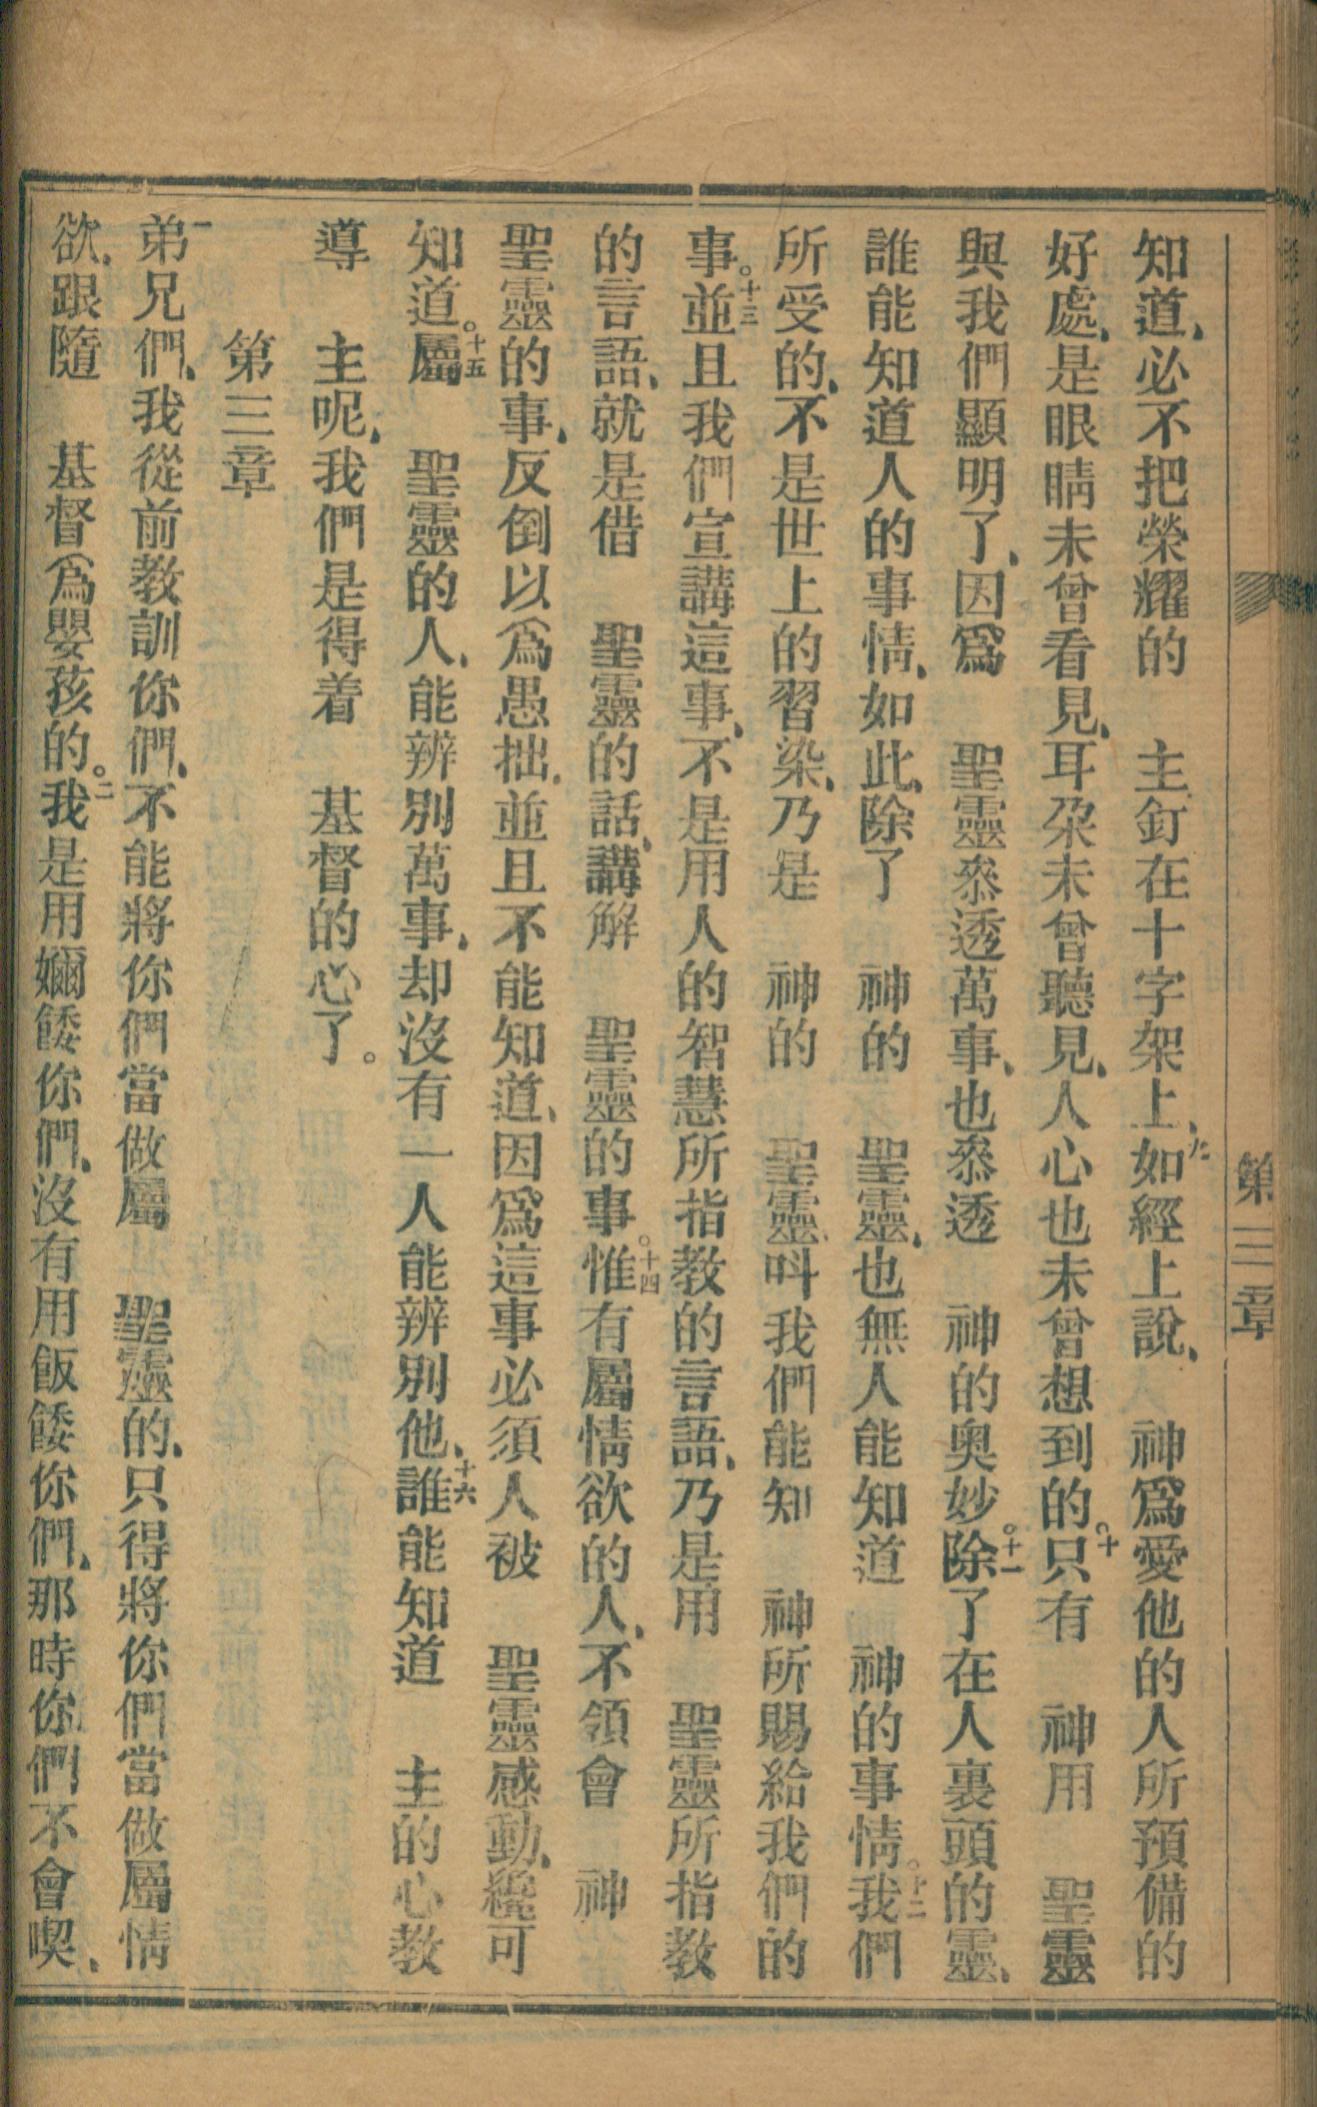 第三章
知道、必不把榮耀的　主釘在十字架上、九如經上說、　神爲愛他的人所預備的
好處、是眼睛未曾看見、耳朶未曾聽見、人心也未曾想到的。十只有　神用　聖靈
與我們顯明了、因爲　聖靈叅透萬事、也叅透　神的奧妙。十一除了在人裏頭的靈、
誰能知道人的事情、如此、除了　神的　聖靈、也無人能知道　神的事情。十二我們
所受的、不是世上的習染、乃是　神的　聖靈、叫我們能知　神所賜給我們的
事。十三並且我們宣講這事、不是用人的智慧所指教的言語、乃是用　聖靈所指教
的言語、就是借　聖靈的話、講解　聖靈的事。十四惟有屬情欲的人、不領會　神
聖靈的事、反倒以爲愚拙、並且不能知道、因爲這事必須人被　聖靈感動、纔可
知道。十五屬　聖靈的人、能辨別萬事、却沒有一人能辨別他、十六誰能知道　主的心教
導　主呢、我們是得着　基督的心了。
第三章
一弟兄們、我從前教訓你們、不能將你們當做屬　聖靈的、只得將你們當做屬情
欲、跟隨　基督爲嬰孩的。二我是用嬭餧你們、沒有用飯餧你們、那時你們不會喫、